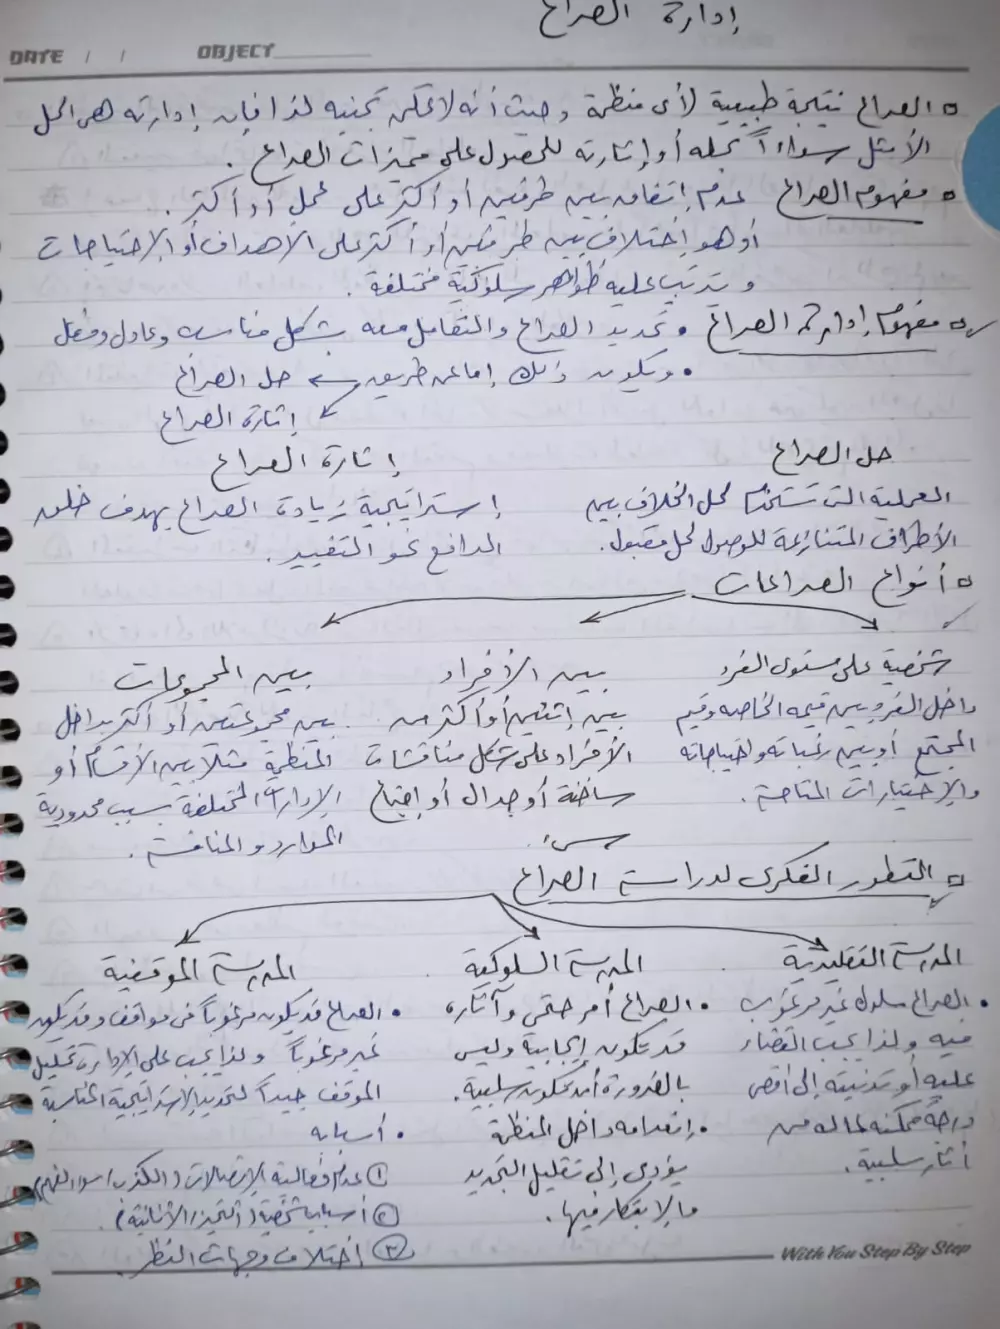 إدارة الصراع
DATE / / OBJECT
الصراع نتيجة طبيعية لأى منظمة وحيث أنه لا يمكن تجنبه لذا فإن إدارته هى الحل
الأمثل سواءاً بحله أو إثارته للحصول على مميزات الصراع .
مفهوم الصراع عدم اتفاق بين طرفين أو أكثر على عمل أو أكثر .
أو هو إختلاف بين طرفين أو أكثر على الأهداف أو الإحتياجات
وترتب عليه ظواهر سلوكية مختلفة .
مفهوم إدارة الصراع • تحديد الصراع والتعامل معه بشكل مناسب وعادل وفعال
• ويكون ذلك إما عن طريق حل الصراع
إثارة الصراع
حل الصراع
العملية التى تستخدم لحل الخلاف بين
الأطراف المتنازعة للوصول لحل مقبول .
إثارة الصراع
إستراتيجية زيادة الصراع بهدف خلق
الدافع نحو التغيير .
أنواع الصراعات
شخصية على مستوى الفرد
داخل الفرد بين قيمه الخاصة وقيم
المجتمع أو بين رغباته واحتياجاته
والإختيارات المتاحة .
بين الأفراد
بين إثنين أو أكثر من
الأفراد على شكل مناقشات
ساخنة أو جدال أو إجتماع
بين المجموعات
بين مجموعتين أو أكثر بداخل
المنظمة مثلا بين الأقسام أو
الإدارات المختلفة بسبب محدودية
الموارد والمنافسة .
التطور الفكرى لدراسة الصراع
المدرسة التقليدية
• الصراع سلوك غير مرغوب
فيه ولذا يجب القضاء
عليه أو تدنيته إلى أقصى
درجة ممكنة لما له من
أثار سلبية .
المدرسة السلوكية
• الصراع أمر حتمى وآثاره
قد تكون إيجابية وليس
بالضرورة أن تكون سلبية .
• إنعدامه داخل المنظمة
يؤدى إلى تقليل التجديد
والإبتكار فيها .
المدرسة الموقفية
• الصراع قد يكون مرغوباً فى مواقف وقد يكون
غير مرغوباً ولذا يجب على الإدارة تحليل
الموقف جيداً لتحديد الإستراتيجية المناسبة
• أسبابه
① عدم فعالية الإتصالات (الكذب/سوء الفهم)
② أسباب شخصية (التحيز/الأنانية) .
③ اختلاف وجهات النظر .
With You Step By Step